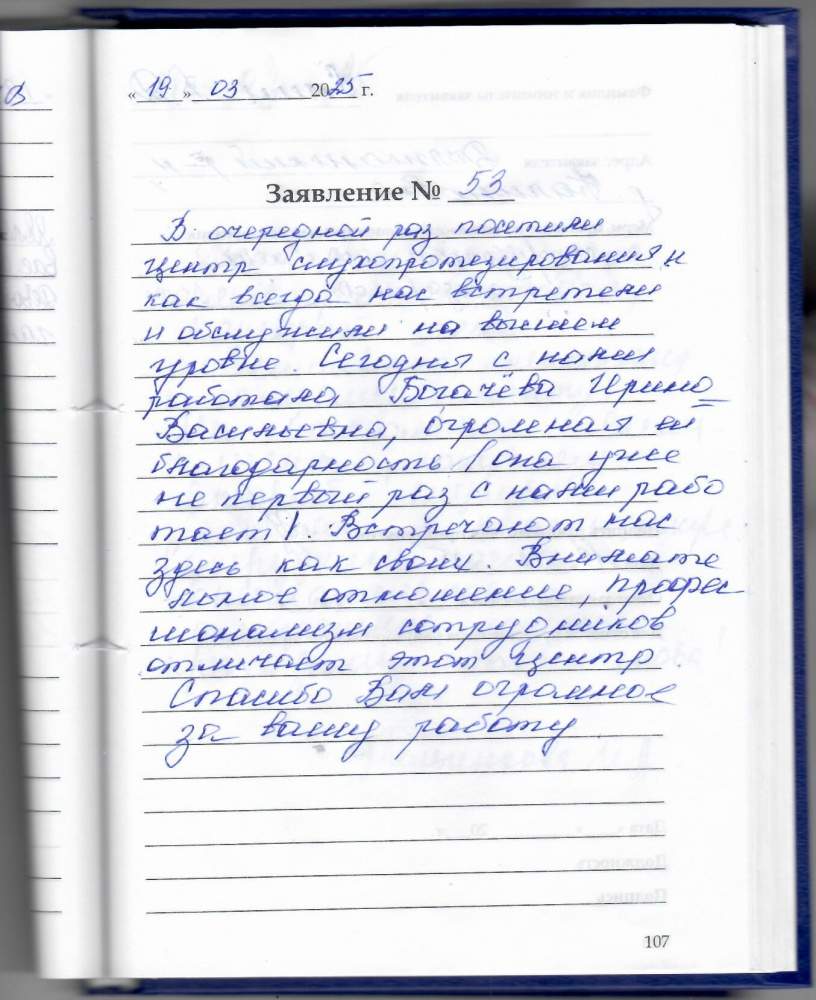 « 19 » 03 2025 г.
Заявление № 53
В очередной раз посетили
центр слухопротезирования и
как всегда нас встретили
и обслужили на высшем
уровне. Сегодня с нами
работала Богачёва Ирина
Васильевна, огромная ей
благодарность (она уже
не первый раз с нами рабо
тает). Встречают нас
здесь как своих. Внимате
льное отношение, профес
ионализм сотрудников
отличает этот центр.
Спасибо Вам огромное
за вашу работу
107